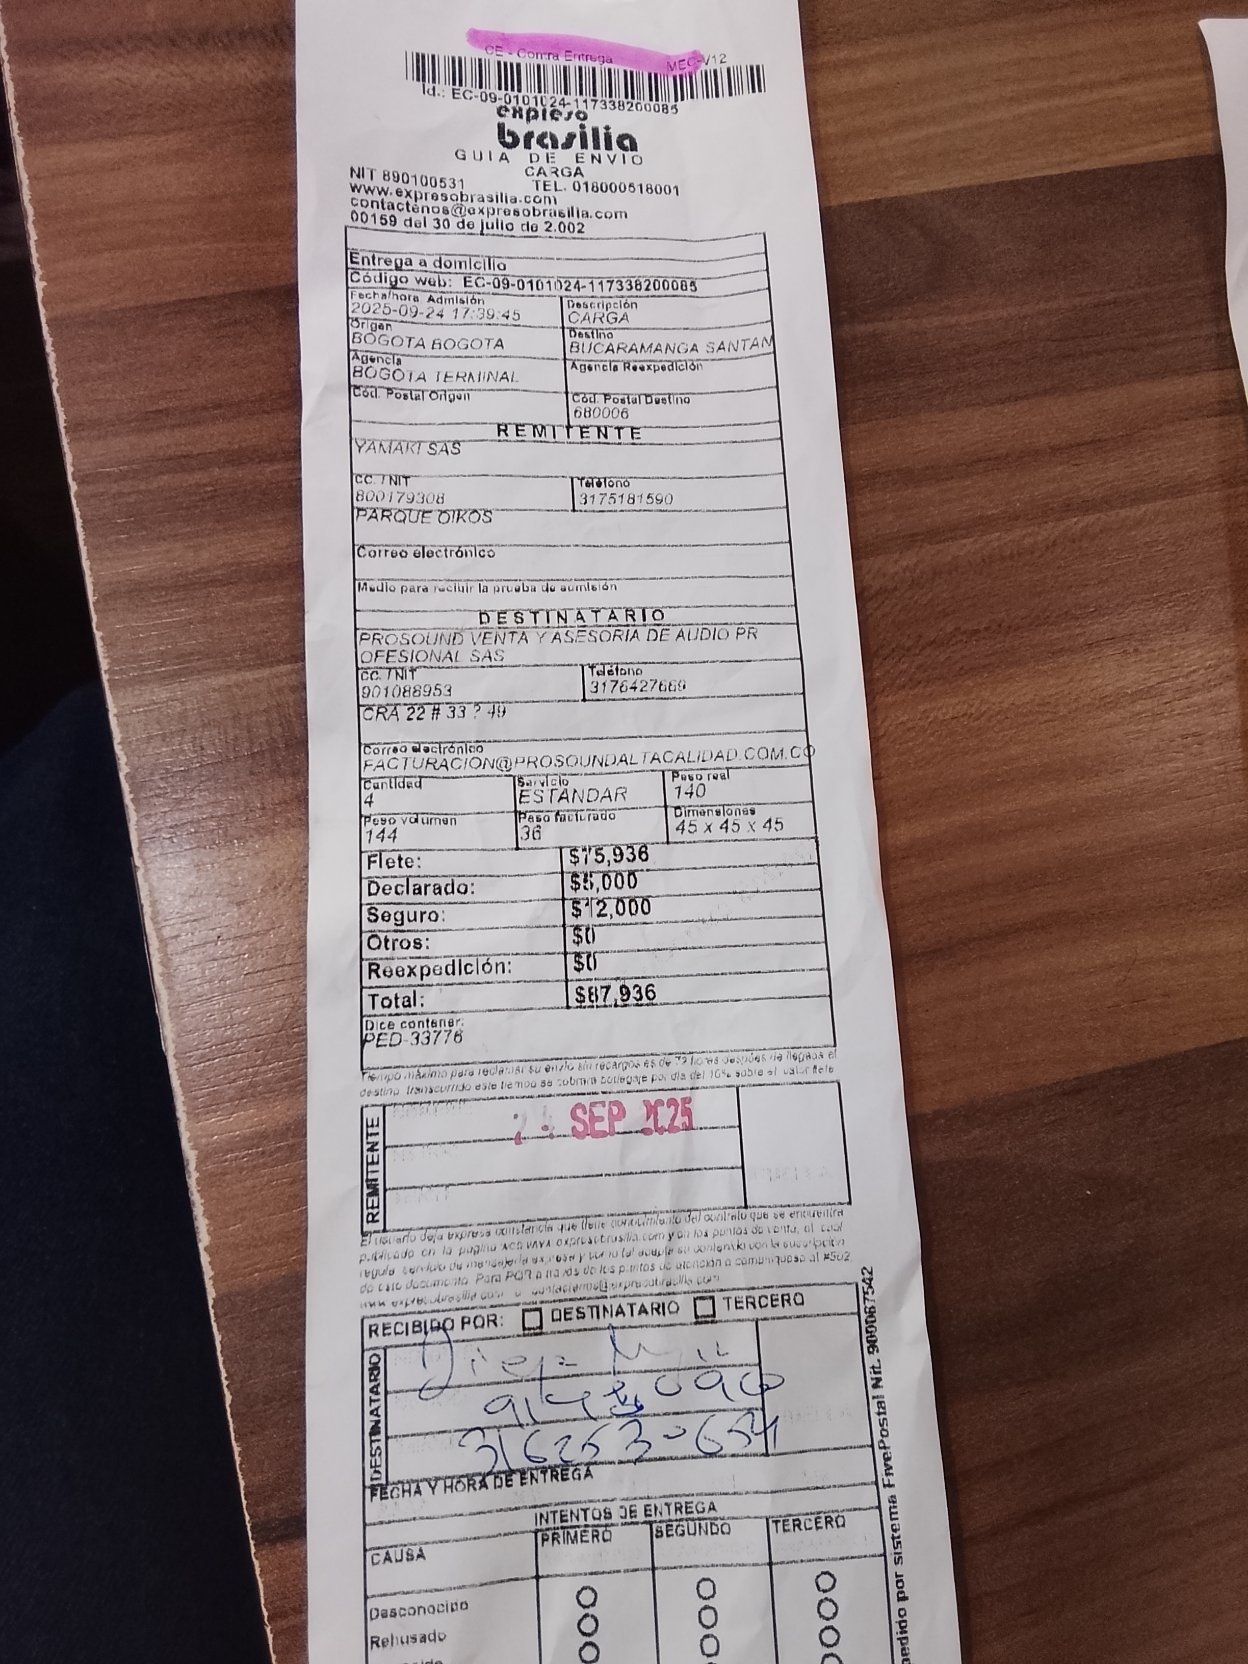 CE - Contra Entrega MEC-V12
Id.: EC-09-0101024-117338200085
expreso
brasilia
GUIA DE ENVIO
CARGA
NIT 890100531 TEL. 018000518001
www.expresobrasilia.com
contactenos@expresobrasilia.com
00159 del 30 de julio de 2.002
Entrega a domicilio
Código web: EC-09-0101024-117338200085
Fecha/hora Admisión Descripción
2025-09-24 17:39:45 CARGA
Origen Destino
BOGOTA BOGOTA BUCARAMANGA SANTAN
Agencia Agencia Reexpedición
BOGOTA TERMINAL
Cód. Postal Origen Cód. Postal Destino
680006
REMITENTE
YAMAKI SAS
CC. / NIT Teléfono
800179308 3175181590
PARQUE OIKOS
Correo electrónico
Medio para recibir la prueba de admisión
DESTINATARIO
PROSOUND VENTA Y ASESORIA DE AUDIO PR
OFESIONAL SAS
CC. / NIT Teléfono
901088953 3176427669
CRA 22 # 33 ? 49
Correo electrónico
FACTURACION@PROSOUNDALTACALIDAD.COM.CO
Cantidad Servicio Peso real
4 ESTANDAR 140
Peso volumen Peso facturado Dimensiones
144 36 45 x 45 x 45
Flete: $75,936
Declarado: $5,000
Seguro: $12,000
Otros: $0
Reexpedición: $0
Total: $87,936
Dice contener:
PED-33776
Tiempo máximo para reclamar su envío sin recargos es de 72 horas después de llegada al
destino, transcurrido este tiempo se cobrará bodegaje por día del 10% sobre el valor flete
REMITENTE
24 SEP 2025
El usuario deja expresa constancia que tiene conocimiento del contrato que se encuentra
publicado en la página web www.expresobrasilia.com y en los puntos de venta, el cual
regula servicio de mensajería expresa y
de este documento. Para PQR a través de los puntos de atención o comuníquese al #502
RECIBIDO POR: DESTINATARIO TERCERO
DESTINATARIO
Diego
FECHA Y HORA DE ENTREGA
INTENTOS DE ENTREGA
CAUSA PRIMERO SEGUNDO TERCERO
Desconocido
Rehusado
pedido por sistema FivePostal Nit. 900087542